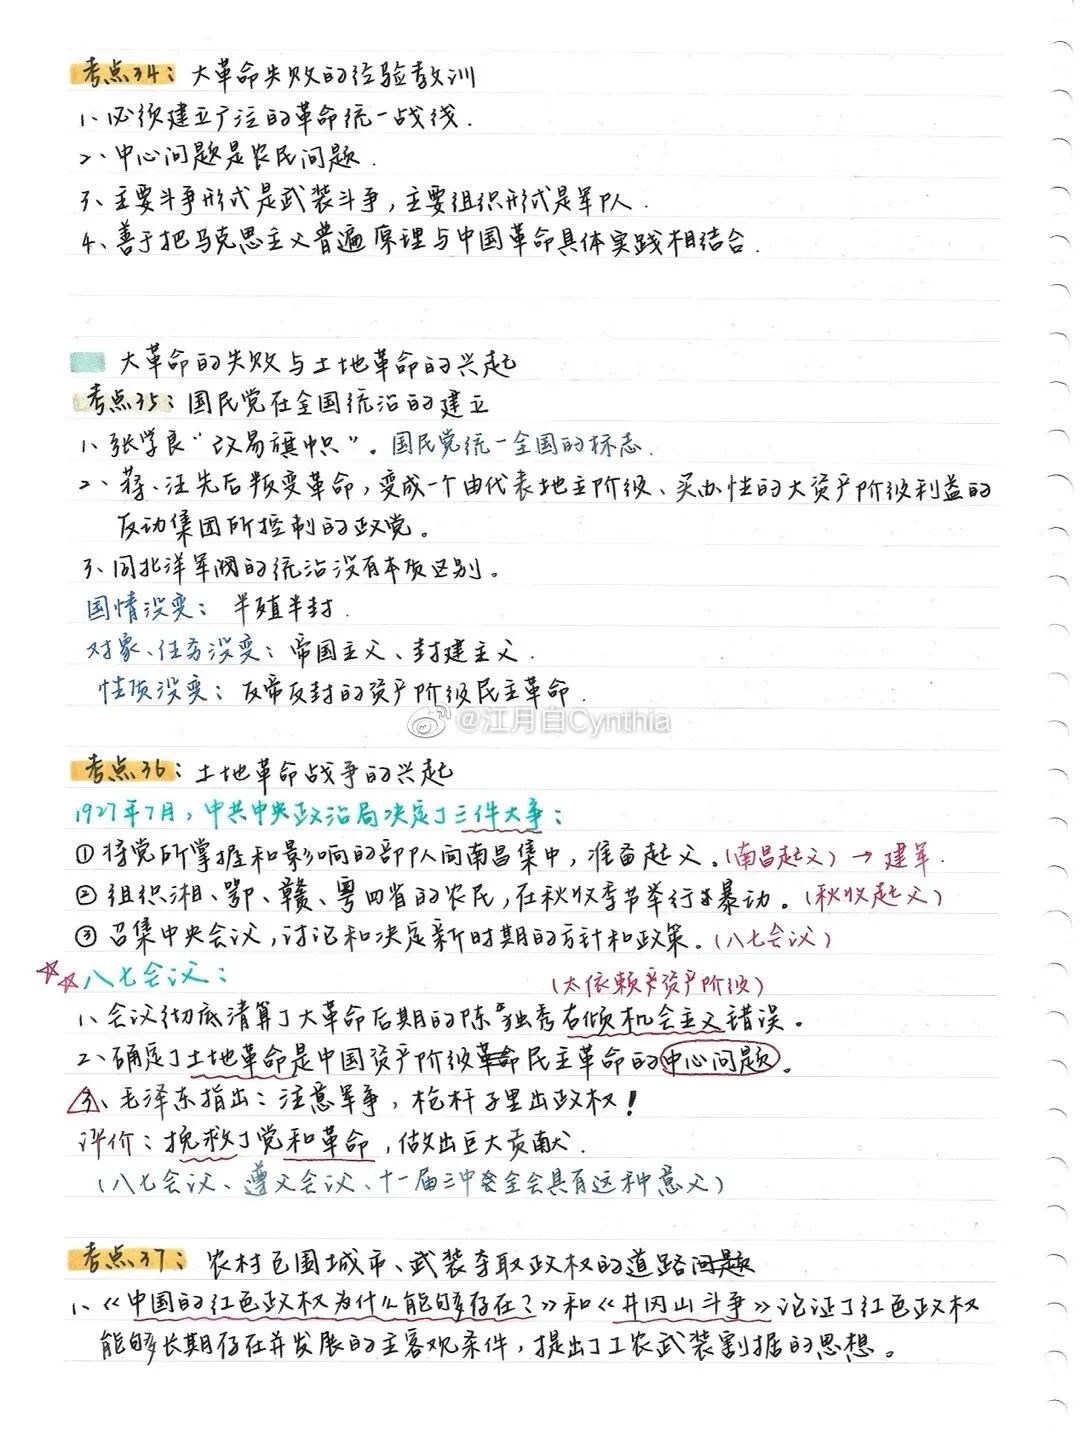 考点34：大革命失败的经验教训
1、必须建立广泛的革命统一战线.
2、中心问题是农民问题.
3、主要斗争形式是武装斗争，主要组织形式是军队.
4、善于把马克思主义普遍原理与中国革命具体实践相结合.
大革命的失败与土地革命的兴起
考点35：国民党在全国统治的建立
1、张学良“改易旗帜”。国民党统一全国的标志.
2、蒋、汪先后叛变革命，变成一个由代表地主阶级、买办性的大资产阶级利益的
反动集团所控制的政党。
3、同北洋军阀的统治没有本质区别。
国情没变：半殖半封.
对象、任务没变：帝国主义、封建主义.
性质没变：反帝反封的资产阶级民主革命.
@江月白Cynthia
考点36：土地革命战争的兴起
1927年7月，中共中央政治局决定了三件大事：
①将党所掌握和影响的部队向南昌集中，准备起义。(南昌起义)→建军.
②组织湘、鄂、赣、粤四省的农民，在秋收季节举行暴动。(秋收起义)
③召集中央会议，讨论和决定新时期的方针和政策。(八七会议)
八七会议：
(太依赖资产阶级)
1、会议彻底清算了大革命后期的陈独秀右倾机会主义错误。
2、确定了土地革命是中国资产阶级民主革命的中心问题。
3、毛泽东指出：注意军事，枪杆子里出政权！
评价：挽救了党和革命，做出巨大贡献.
(八七会议、遵义会议、十一届三中全会具有这种意义)
考点37：农村包围城市、武装夺取政权的道路
1、《中国的红色政权为什么能够存在？》和《井冈山斗争》论证了红色政权
能够长期存在并发展的主客观条件，提出了工农武装割据的思想。